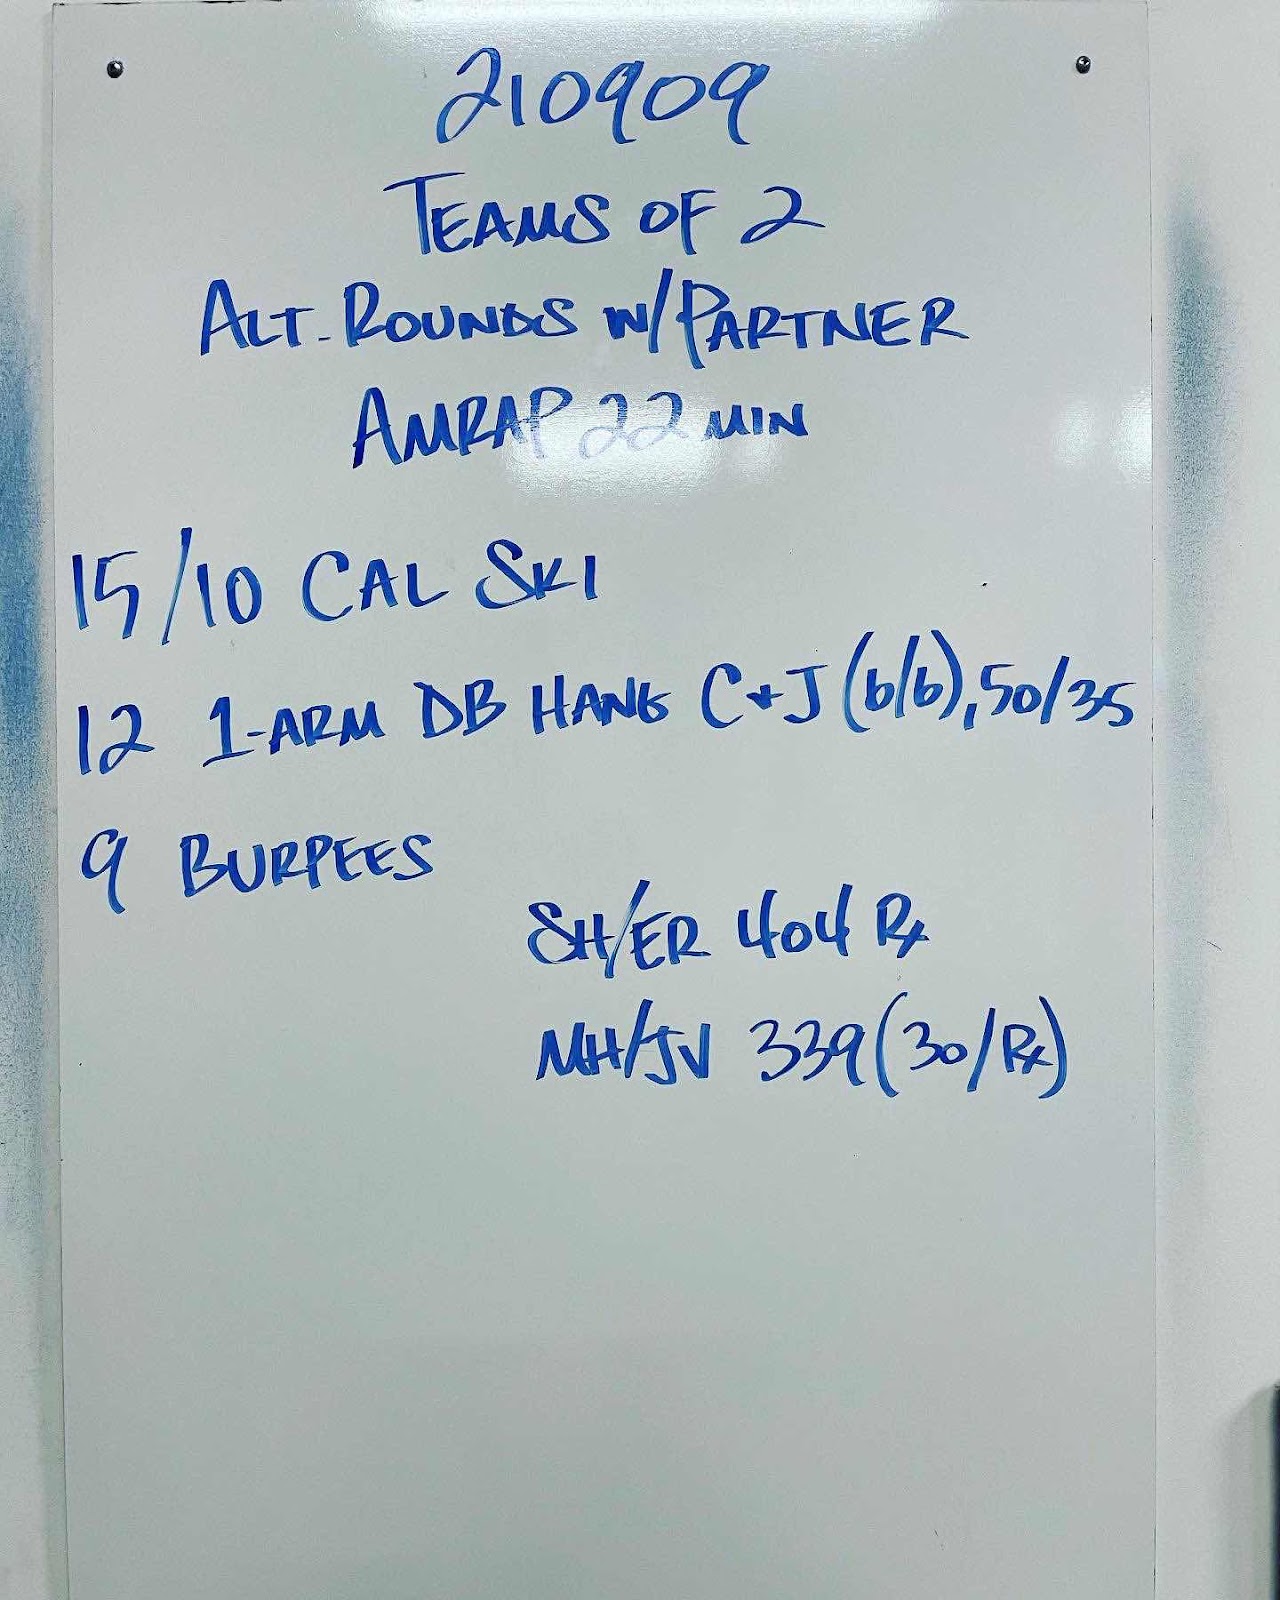 210909
TEAMS OF 2
ALT. ROUNDS W/PARTNER
AMRAP 22 MIN
15/10 CAL SKI
12 1-ARM DB HANG C+J (6/6), 50/35
9 BURPEES
SH/ER 404 Rx
MH/JV 339 (30/Rx)